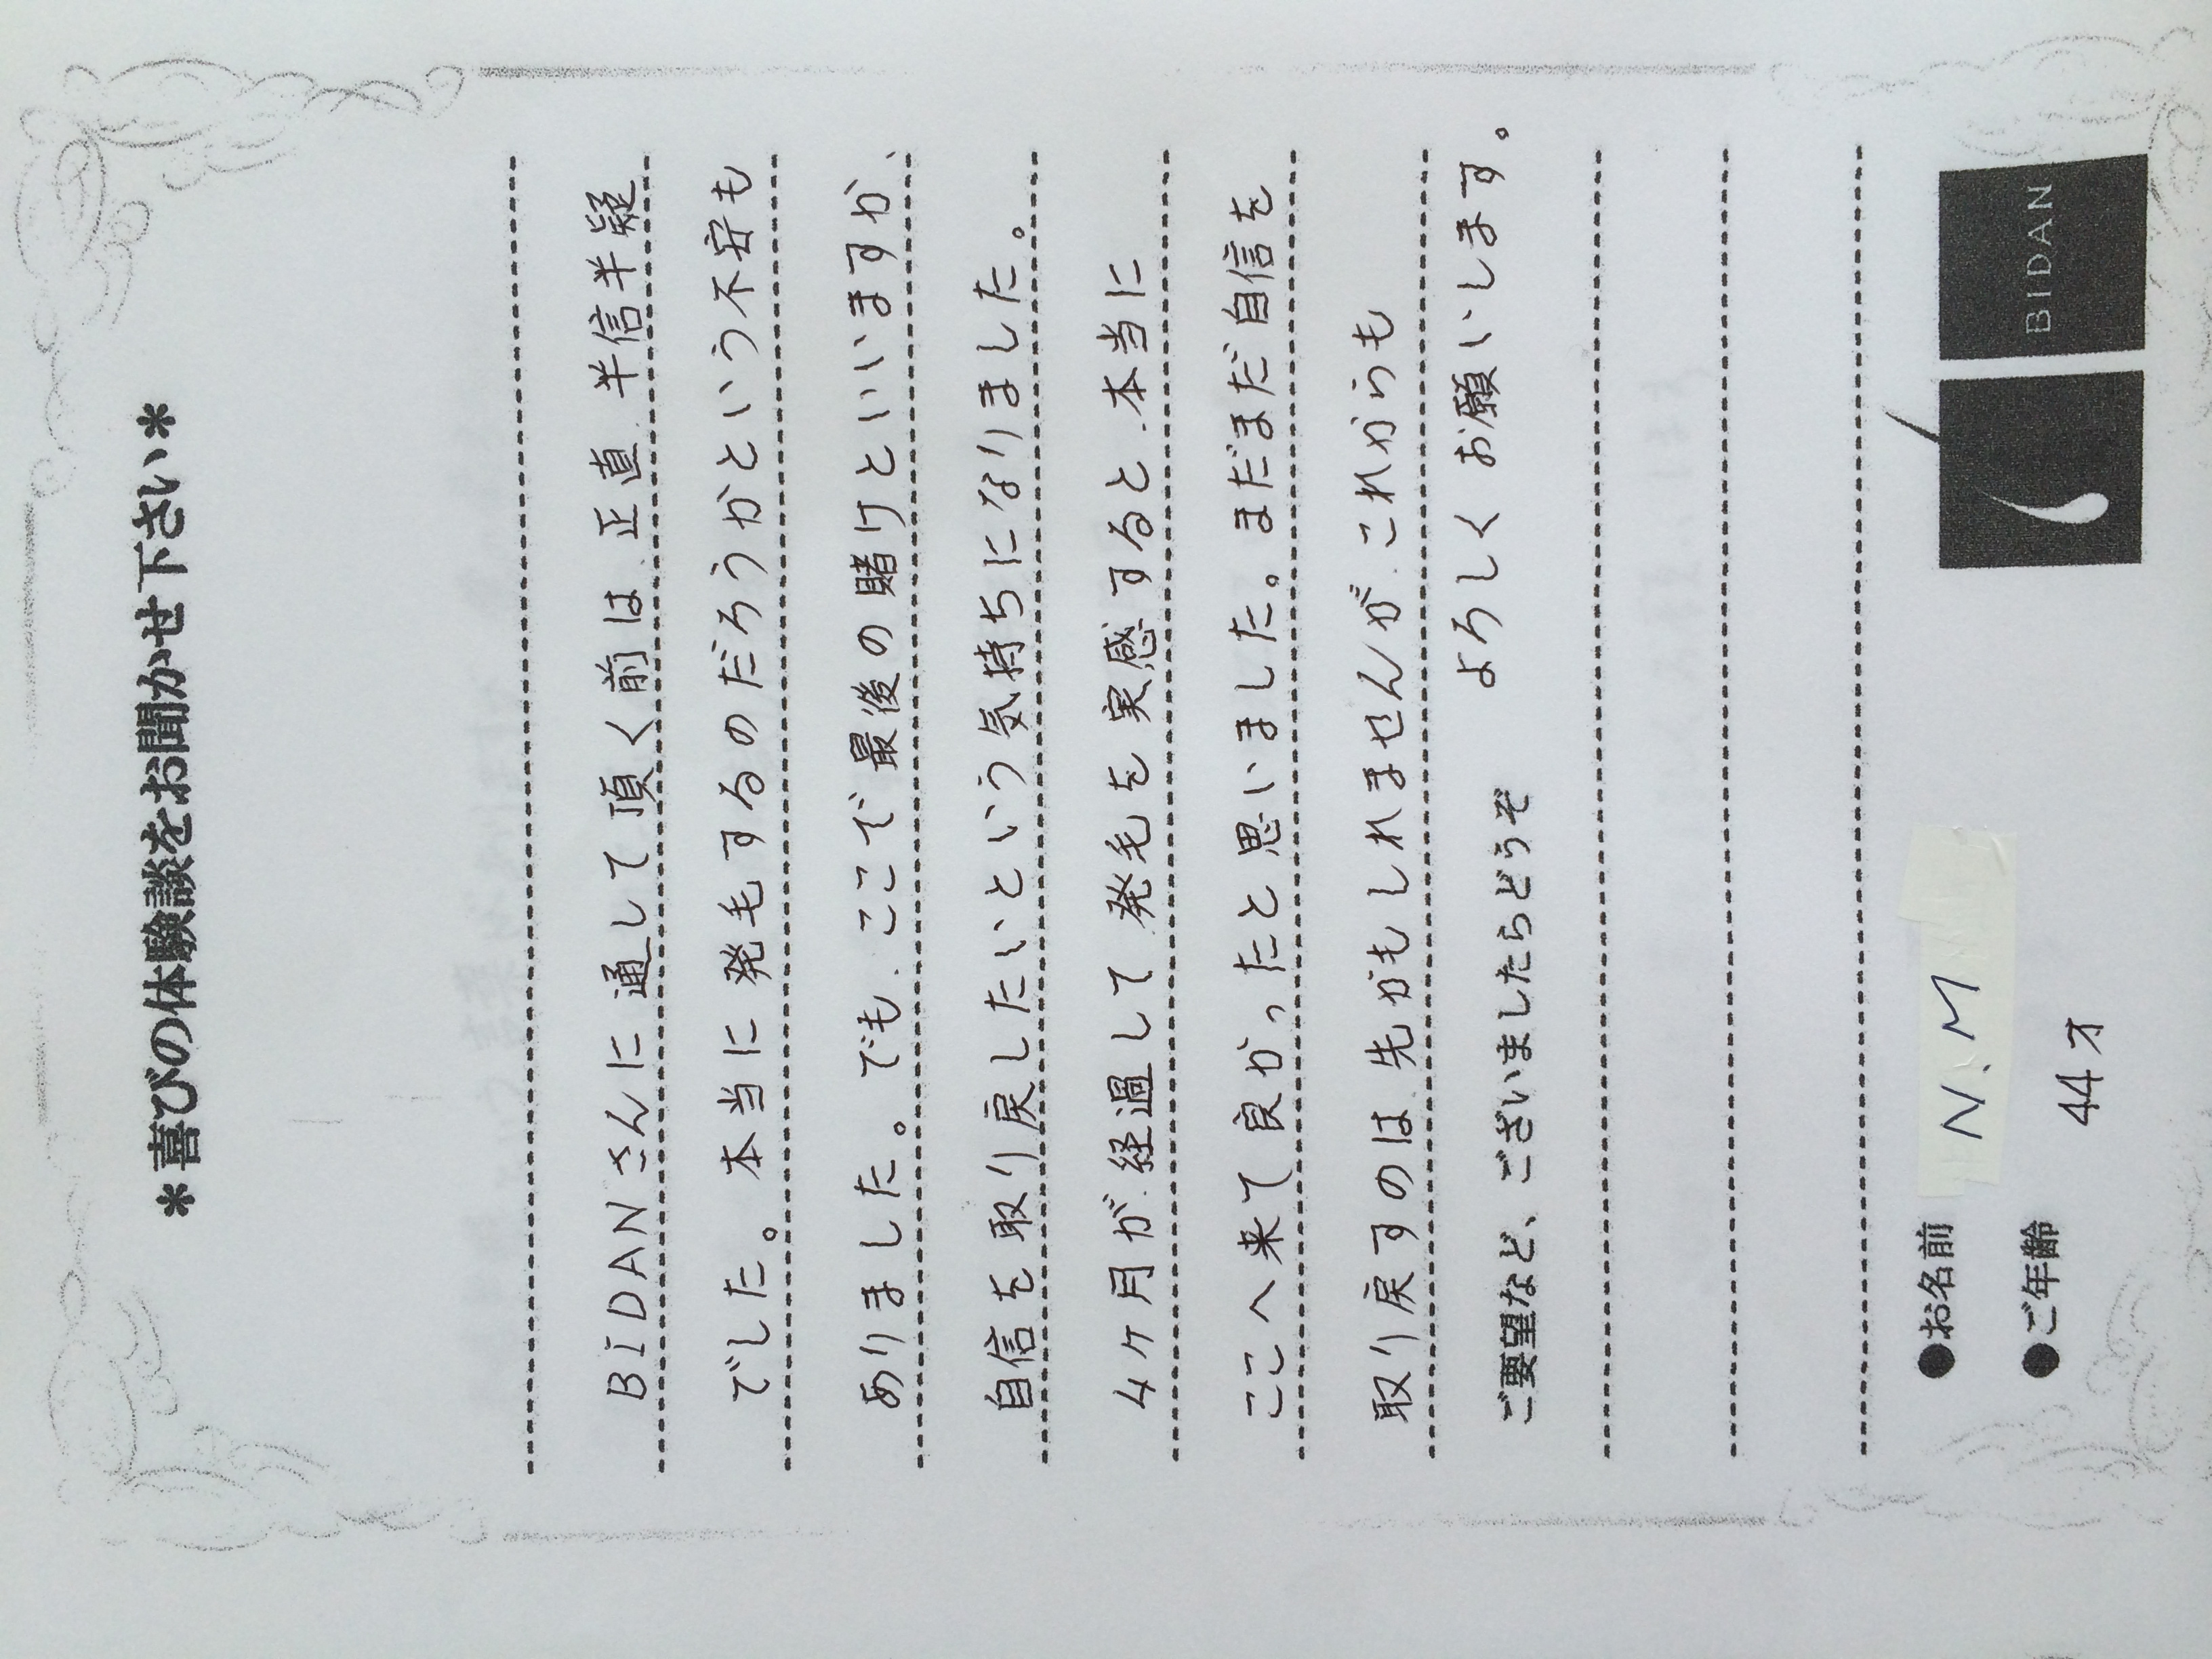 ＊喜びの体験談をお聞かせ下さい＊
BIDANさんに通して頂く前は、正直、半信半疑
でした。本当に発毛するのだろうかという不安も
ありました。でも、ここで最後の賭けといいますか、
自信を取り戻したいという気持ちになりました。
4ヶ月が経過して発毛を実感すると、本当に
ここへ来て良かったと思いました。まだまだ自信を
取り戻すのは、先かもしれませんが、これからも
よろしくお願いします。
ご要望など、ございましたらどうぞ
●お名前 N、M
●ご年齢 44才
BIDAN